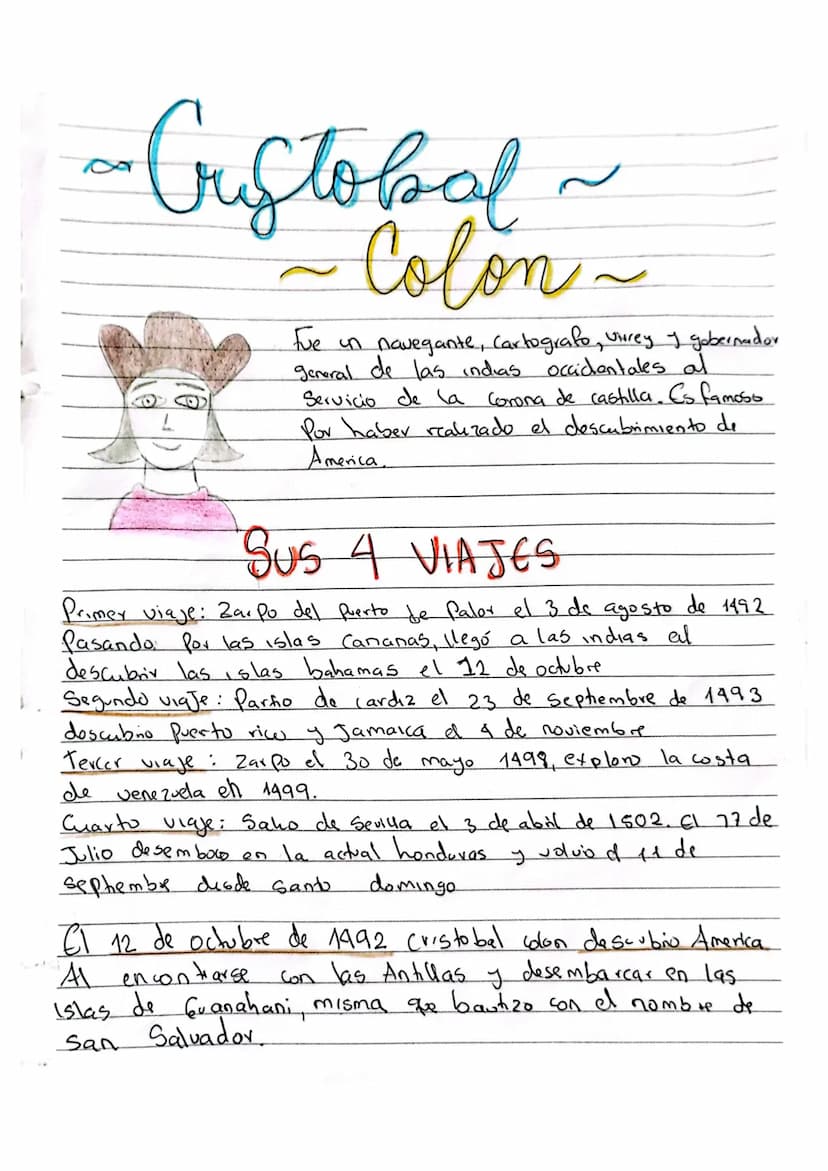 ~ Cristobal ~
~ Colon ~
Fue un navegante, Cartografo, virrey y gobernador
general de las indias occidentales al
Servicio de la corona de castilla. Es famoso
Por haber realizado el descubrimiento de
America.
SUS 4 VIAJES
Primer viaje: Zarpo del Puerto de Palos el 3 de agosto de 1492
Pasando por las islas Canarias, llegó a las indias al
descubrir las islas bahamas el 12 de octubre
Segundo viaje: Partio de cardiz el 23 de septiembre de 1493
descubrio Puerto rico y Jamaica el 4 de noviembre
Tercer viaje: Zarpo el 30 de mayo 1498, exploro la costa
de venezuela en 1499.
Cuarto viaje: Salio de Sevilla el 3 de abril de 1502. El 17 de
Julio desemboco en la actual honduras y volvio el 11 de
septiembre desde santo domingo
El 12 de octubre de 1492 cristobal colon descubrio America
Al encontrarse con las Antillas y desembarcar en las
islas de Guanahani, misma que bautizo con el nombre de
San Salvador.